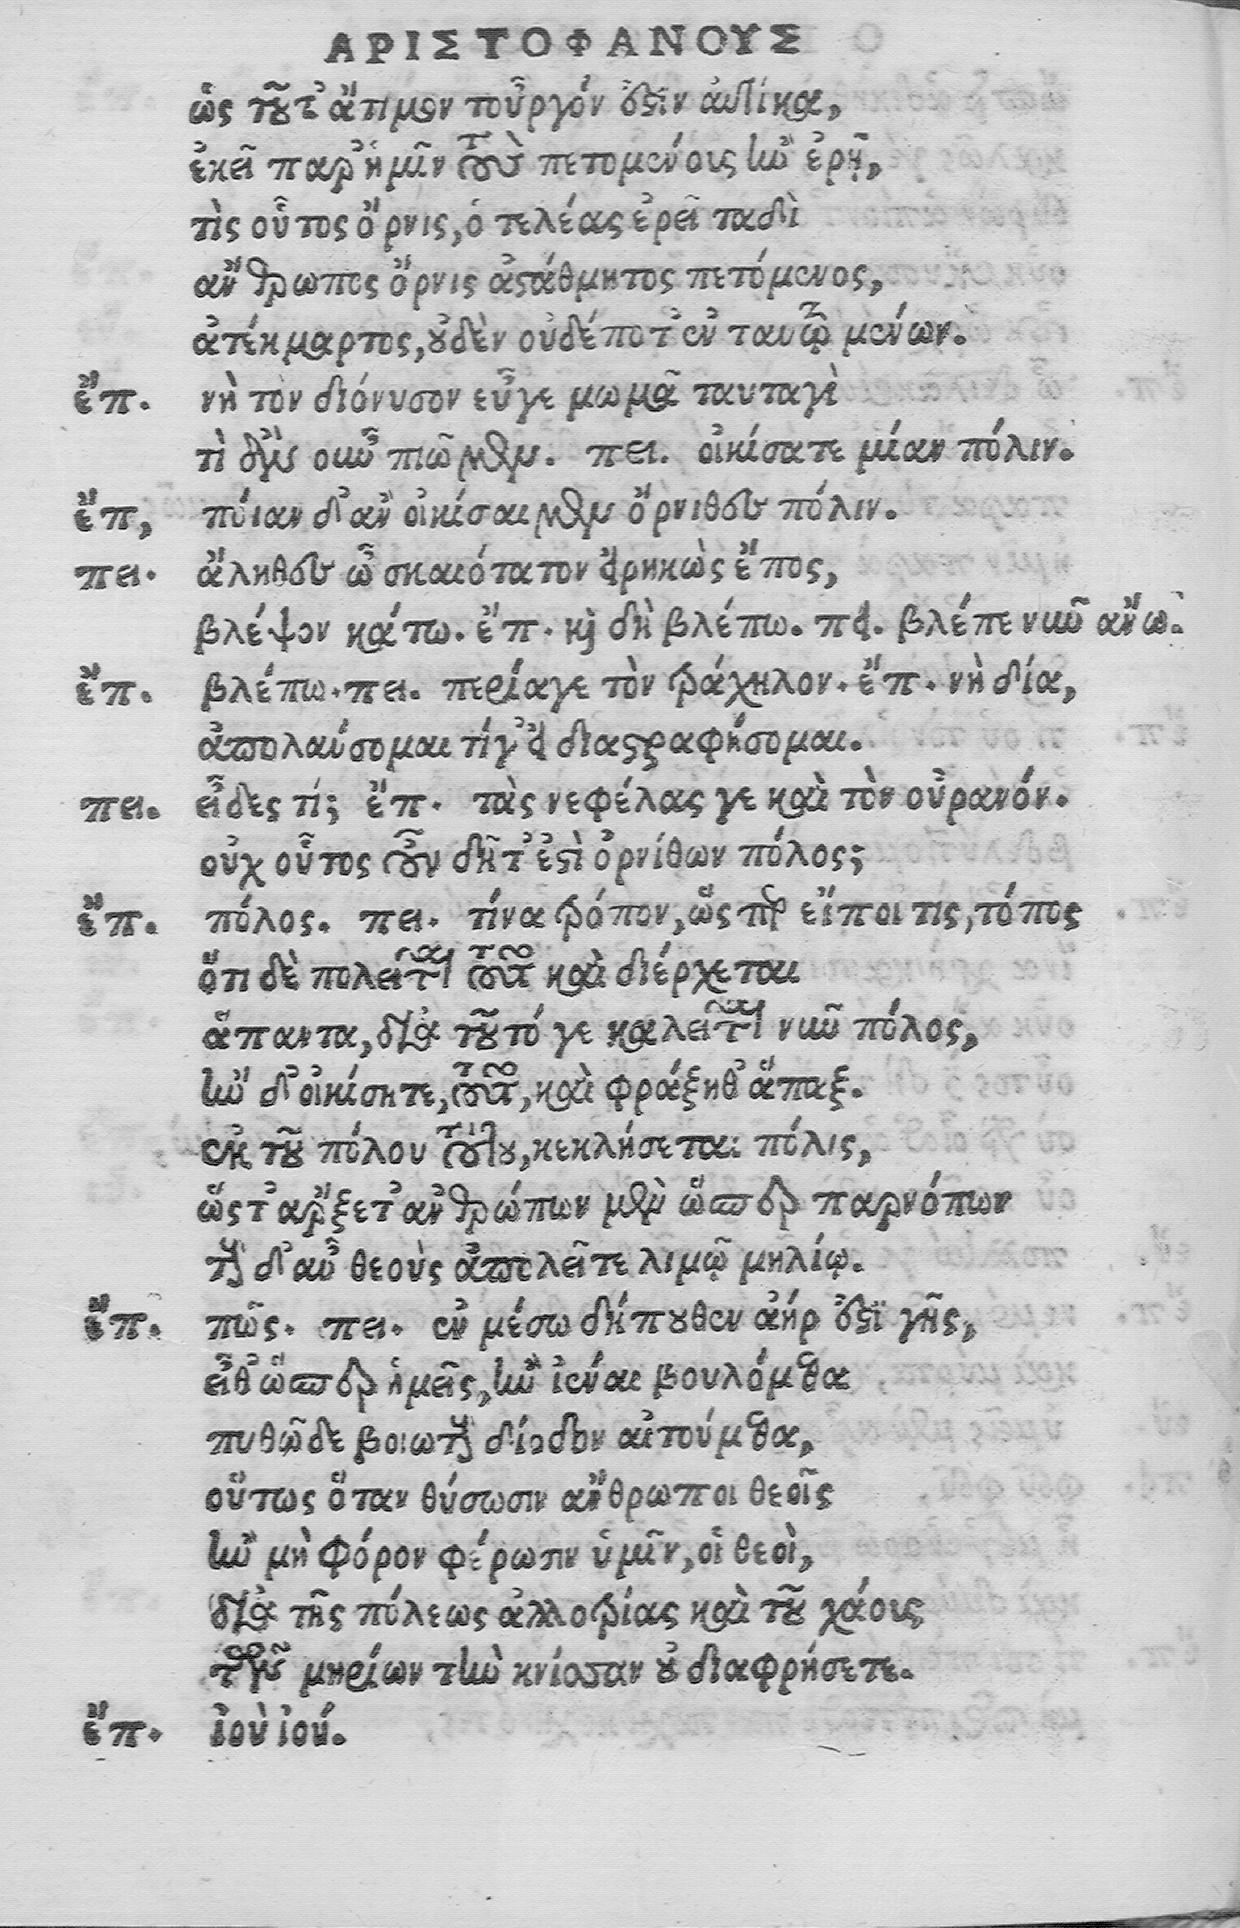 ΑΡΙΣΤΟΦΑΝΟΥΣ
ὡς τοῦτ' ἄτιμον τοὖργόν ἐστιν αὐτίκα,
ἐκεῖ παρ' ἡμῖν τοὺς πετομένους ἢν ἐρῇ,
τὶς οὗτος ὄρνις, ὁ τελέας ἐρεῖ ταδὶ
ἄνθρωπος ὄρνις ἀστάθμητος πετόμενος,
ἀτέκμαρτος, οὐδὲν οὐδέποτ' ἐν ταυτῷ μένων.
ἔπ. νὴ τὸν διόνυσον εὖγε μωμᾶ ταυταγὶ
τὶ δ' ἂν οὖν ποιῶμεν. πει. οἰκίσατε μίαν πόλιν.
ἔπ, ποίαν δ' ἂν οἰκίσαιμεν ὄρνιθες πόλιν.
πει. ἄληθες ὦ σκαιότατον εἰρηκὼς ἔπος,
βλέψον κάτω. ἔπ. καὶ δὴ βλέπω. πει. βλέπε νῦν ἄνω.
ἔπ. βλέπω. πει. περίαγε τὸν τράχηλον. ἔπ. νὴ δία,
ἀπολαύσομαι τί γ' εἰ διαστραφήσομαι.
πει. εἶδες τί; ἔπ. τὰς νεφέλας γε καὶ τὸν οὐρανόν.
οὐχ οὗτος οὖν δῆτ' ἐστὶ ὀρνίθων πόλος;
ἔπ. πόλος. πει. τίνα τρόπον, ὥς περ εἴποι τις, τόπος
ὅτι δὲ πολεῖται τοῦτο καὶ διέρχεται
ἅπαντα, διὰ τοῦτό γε καλεῖται νῦν πόλος,
ἢν δ' οἰκίσητε, τοῦτο, καὶ φράξηθ' ἅπαξ.
ἐκ τοῦ πόλου τούτου, κεκλήσεται πόλις,
ὥςτ' ἄρξετ' ἀνθρώπων μὲν ὥσπερ παρνόπων
τοὺς δ' αὖ θεοὺς ἀπολεῖτε λιμῷ μηλίῳ.
ἔπ. πῶς. πει. ἐν μέσω δήπουθεν ἀήρ ἐστι γῆς,
εἶθ' ὥσπερ ἡμεῖς, ἢν ἰέναι βουλόμεθα
πυθῶδε βοιωτοὺς δίοδον αἰτούμεθα,
οὕτως ὅταν θύσωσιν ἄνθρωποι θεοῖς
ἢν μὴ φόρον φέρωσιν ὑμῖν, οἱ θεοὶ,
διὰ τῆς πόλεως ἀλλοτρίας καὶ τοῦ χάους
τῶν μηρίων τὴν κνίσσαν οὐ διαφρήσετε.
ἔπ. ἰοὺ ἰού.